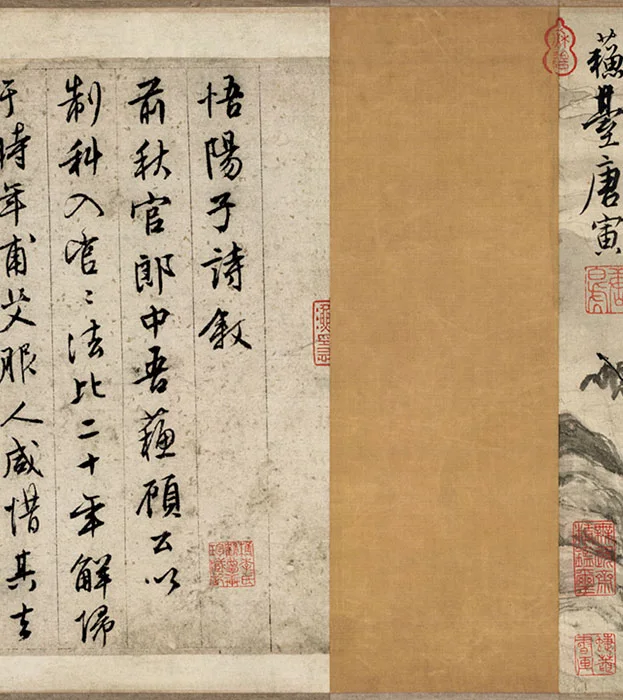 蘓臺唐寅
悟陽子詩叙
前秋官郎中吾蘓顧公以
制科入官〻法比二十年解歸
于時年甫艾服人咸惜其去